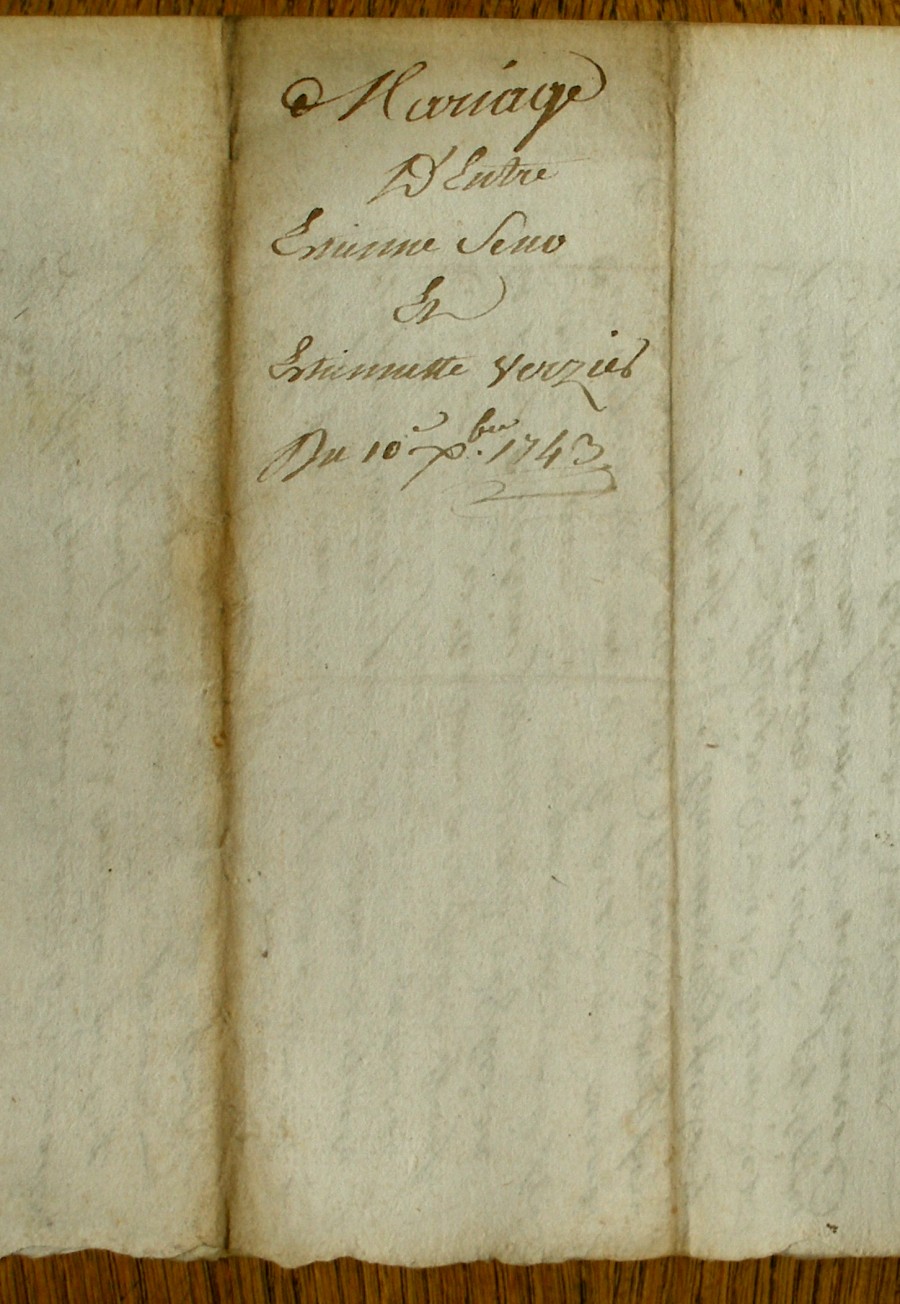 Mariage
D'Entre
Estienne Seno
Et
Estiennette Verziés
Du 10e xbre 1743